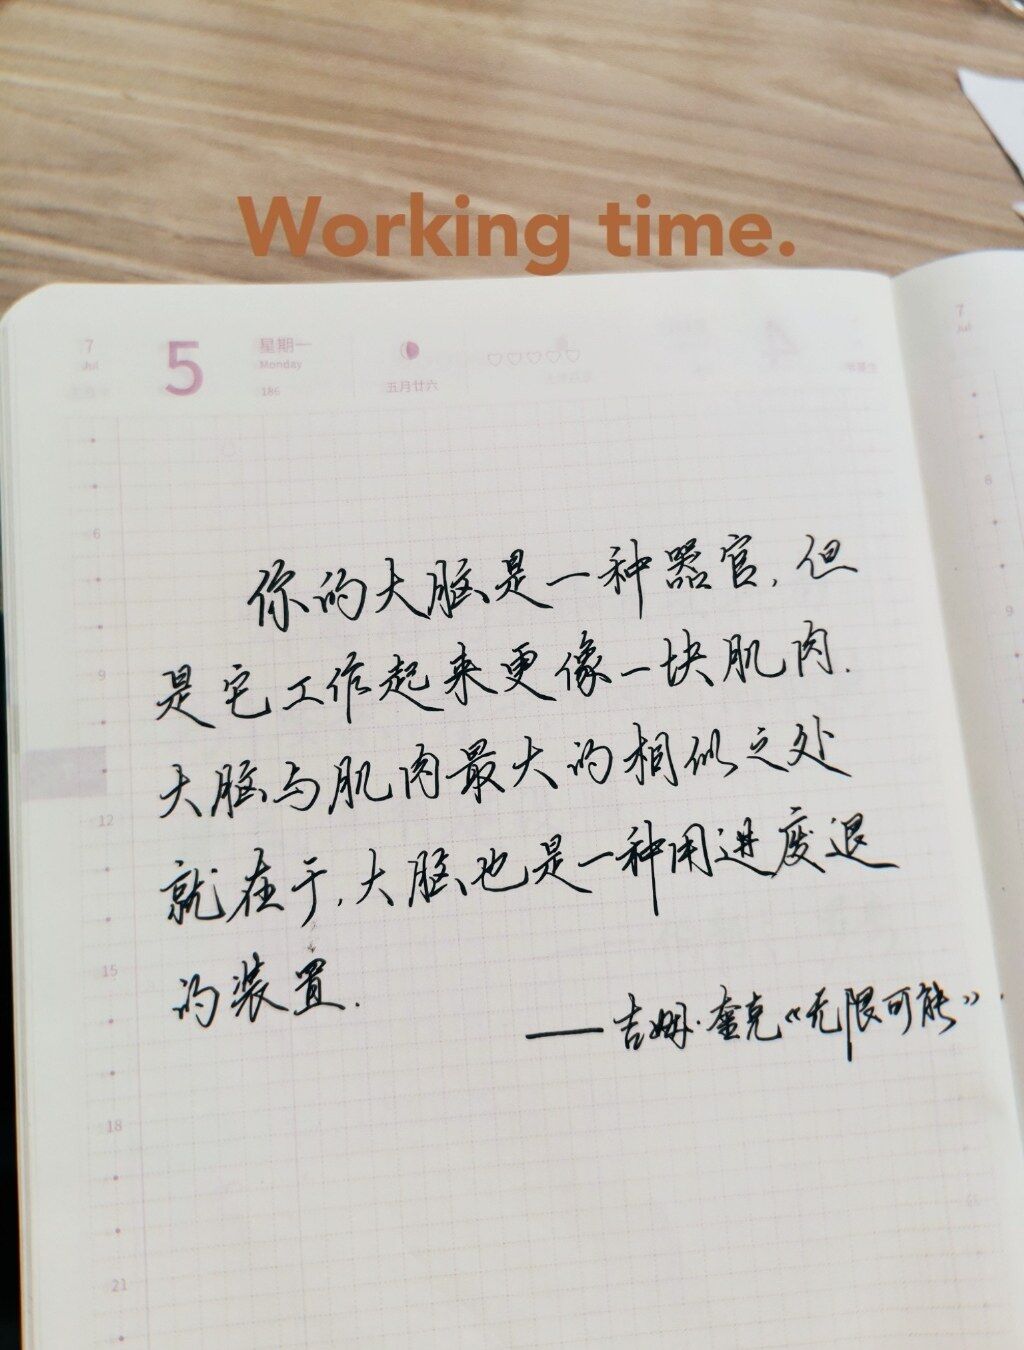 Working time.
7
Jul
5
星期一
Monday
186
五月廿六
7
Jul
6
你的大脑是一种器官,但
9
是它工作起来更像一块肌肉.
大脑与肌肉最大的相似之处
12
就在于,大脑也是一种用进废退
15
的装置.
——吉姆·奎克《无限可能》.
18
21
8
9